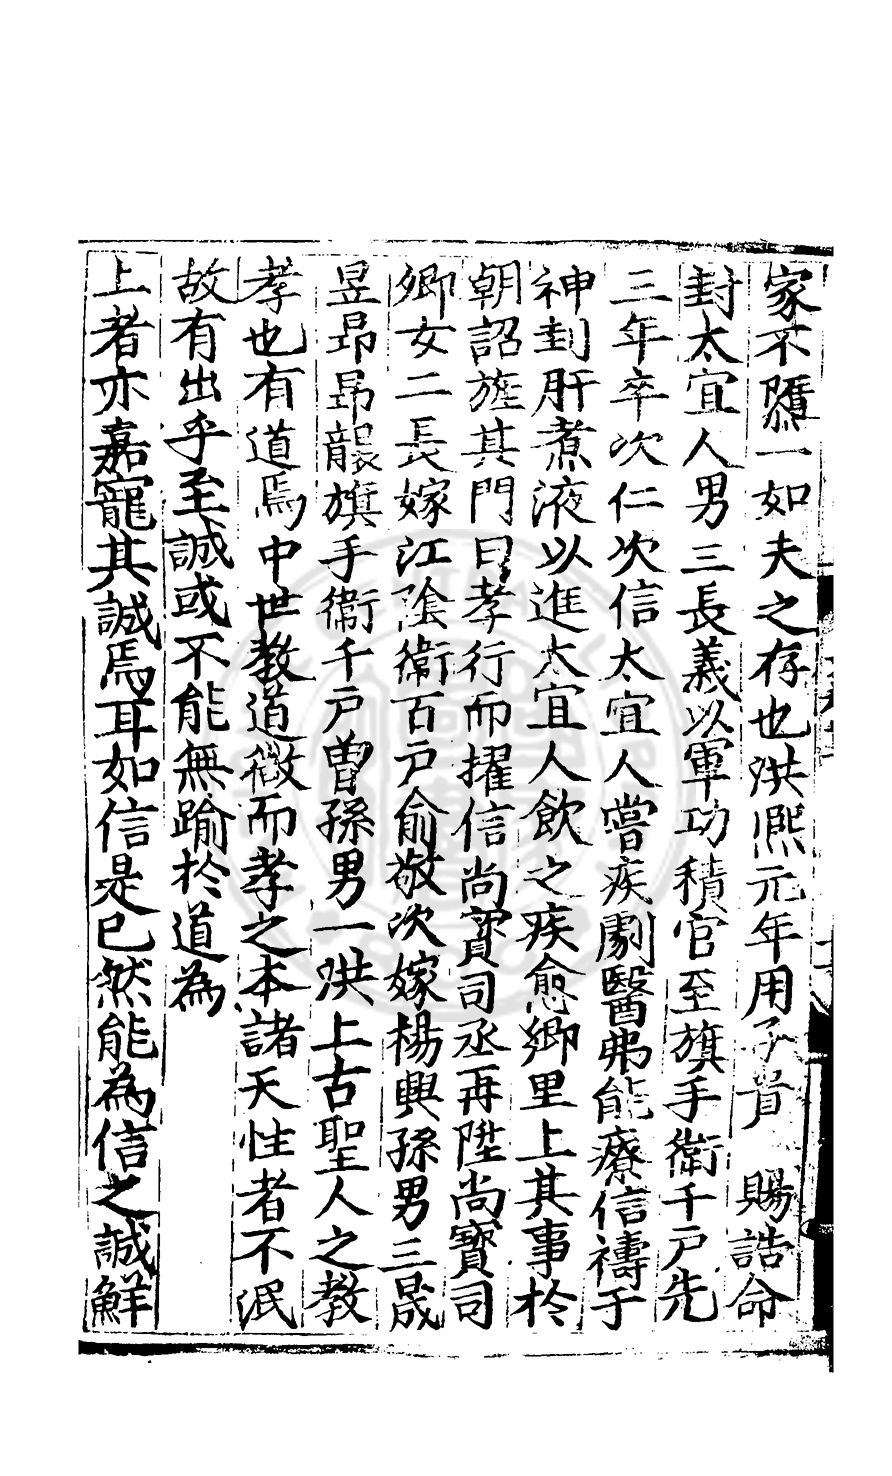 家不隳一如夫之存也洪熙元年用子貴　賜誥命
封太宜人男三長義以軍功積官至旗手衛千戶先
三年卒次仁次信太宜人嘗疾劇醫弗能療信禱于
神刲肝煮液以進太宜人飲之疾愈鄉里上其事於
朝詔旌其門曰孝行而擢信尚寶司丞再陞尚寶司
卿女二長嫁江陰衛百戶俞敬次嫁楊興孫男三晟
昱昂昂襲旗手衛千戶曾孫男一洪上古聖人之教
孝也有道焉中世教道微而孝之本諸天性者不泯
故有出乎至誠或不能無踰於道為
上者亦嘉寵其誠焉耳如信是已然能為信之誠鮮